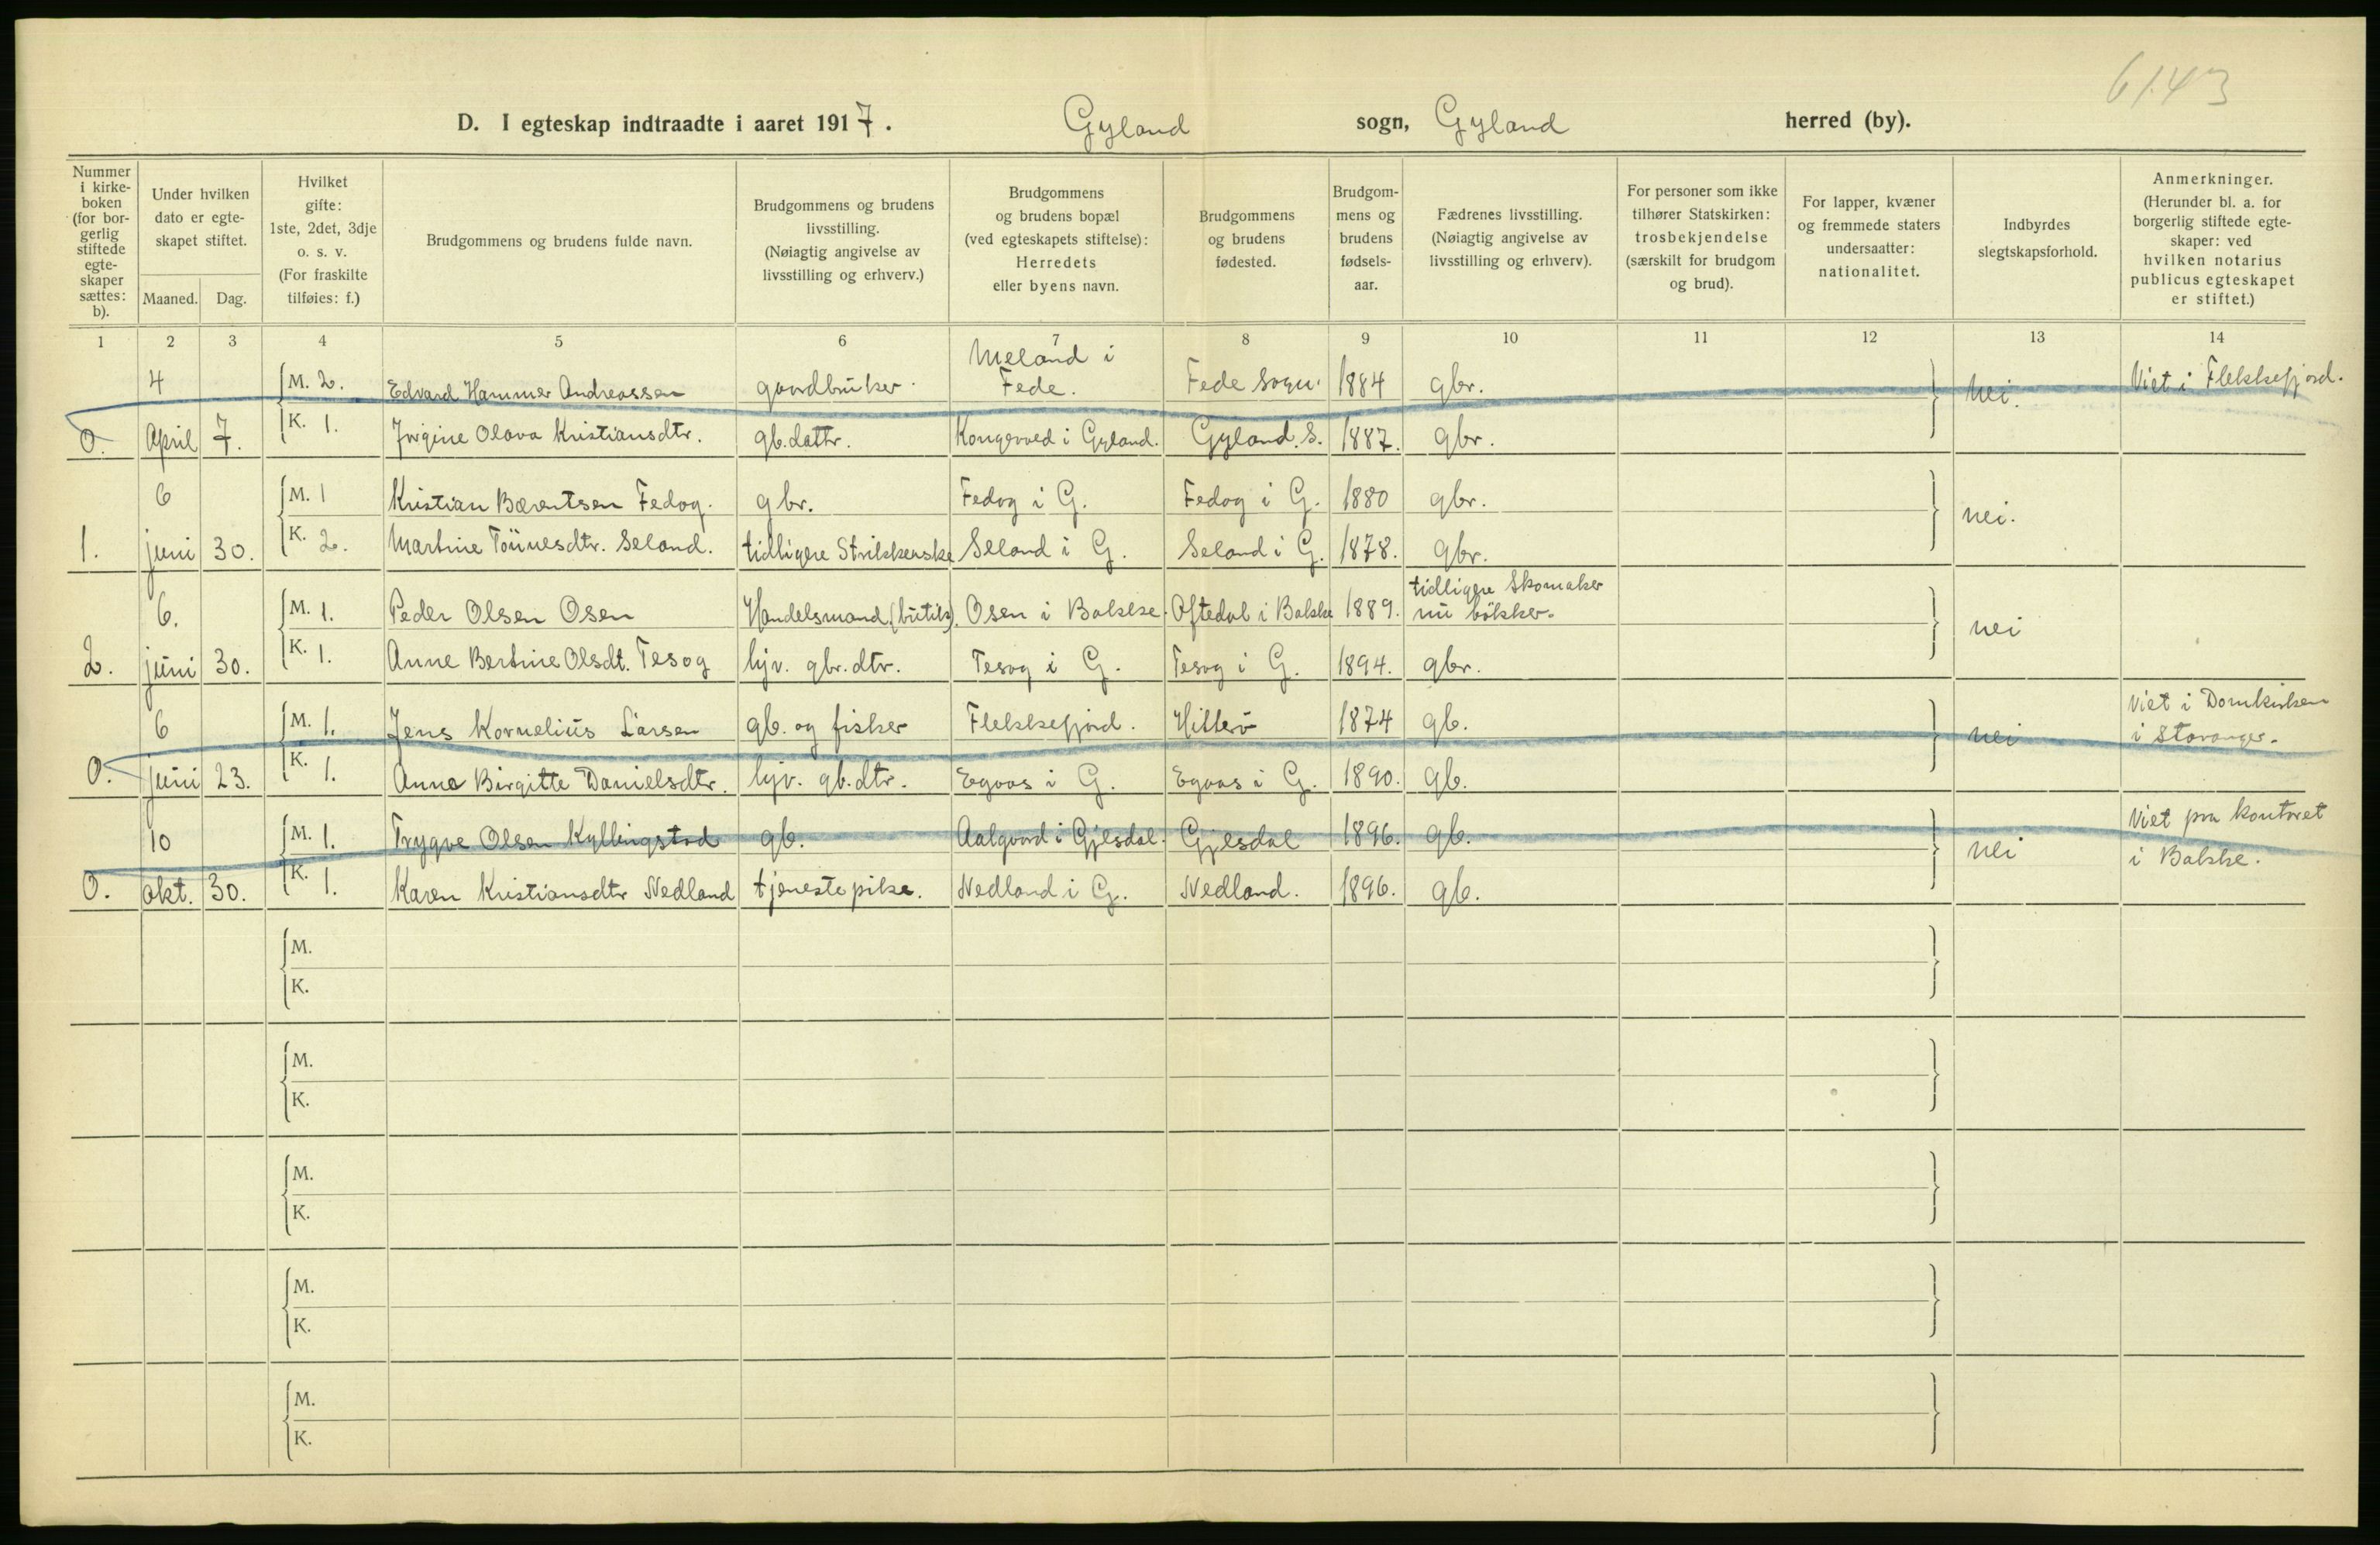 6143
D. I egteskap indtraadte i aaret 1917. Gyland sogn, Gyland herred (by).
Nummer
i kirke-
boken
(for bor-
gerlig
stiftede
egte-
skaper
sættes:
b).
Under hvilken
dato er egte-
skapet stiftet.
Maaned. Dag.
Hvilket
gifte:
1ste, 2det, 3dje
o. s. v.
(For fraskilte
tilføies: f.)
Brudgommens og brudens fulde navn.
Brudgommens og brudens
livsstilling.
(Nøiagtig angivelse av
livsstilling og erhverv.)
Brudgommens
og brudens bopæl
(ved egteskapets stiftelse):
Herredets
eller byens navn.
Brudgommens
og brudens
fødested.
Brudgom-
mens og
brudens
fødsels-
aar.
Fædrenes livsstilling.
(Nøiagtig angivelse av
livsstilling og erhverv).
For personer som ikke
tilhører Statskirken:
trosbekjendelse
(særskilt for brudgom
og brud).
For lapper, kvæner
og fremmede staters
undersaatter:
nationalitet.
Indbyrdes
slegtskapsforhold.
Anmerkninger.
(Herunder bl. a. for
borgerlig stiftede egte-
skaper: ved
hvilken notarius
publicus egteskapet
er stiftet.)
1 2 3 4 5 6 7 8 9 10 11 12 13 14
4 M. 2. Edvard Hammer Andreassen gaardbruker. Meland i Fede. Fede sogn. 1884 gbr. nei. Viet i Flekkefjord.
0. April 7. K. 1. Jorgine Olava Kristiansdtr. gb. dattr. Kongevold i Gyland. Gyland S. 1887. gbr.
6 M. 1 Kristian Bærentsen Fedog. gbr. Fedog i G. Fedog i G. 1880 gbr. nei.
1. juni 30. K. 2. Martine Tönnesdtr. Seland. tidligere Strikkerske Seland i G. Seland i G. 1878. gbr.
6. M. 1. Peder Olsen Osen Handelsmand (butik). Osen i Bakke. Oftedal i Bakke 1889. tidligere Skomaker nu bökker. nei
2. juni 30. K. 1. Anne Bertine Olsdt. Tesog hjv. gbr. dtr. Tesog i G. Tesog i G. 1894. gbr.
6 M. 1. Jens Kornelius Larsen gb. og fisker Flekkefjord. Hitterö 1874 gb. nei Viet i Domkirken i Stavanger.
0. juni 23. K. 1. Anna Birgitte Danielsdtr. hjv. gb. dtr. Egaas i G. Egaas i G. 1890. gb.
10 M. 1. Trygve Olsen Kyllingstad gb. Aalgaard i Gjesdal. Gjesdal 1896. gb. nei Viet paa kontoret i Bakke.
0. okt. 30. K. 1. Karen Kristiansdtr Nedland tjenestepike. Nedland i G. Nedland. 1896. gb.
M.
K.
M.
K.
M.
K.
M.
K.
M.
K.